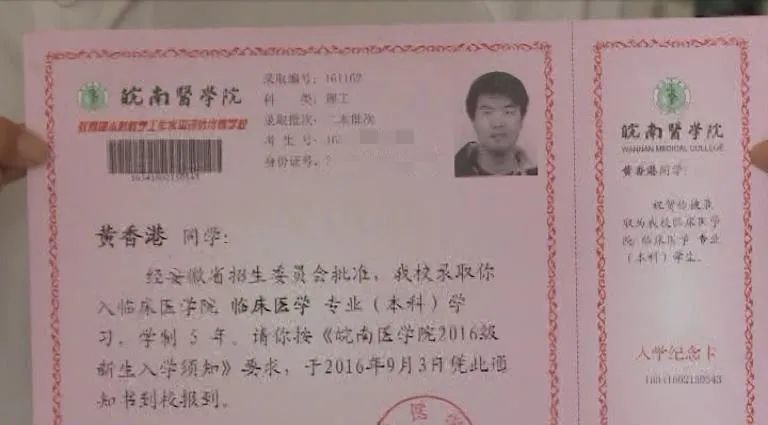 皖南醫學院
教育部本科教学工作水平评估优秀学校
录取编号: 161162
科 类: 理工
录取批次: 二本批次
考 生 号: 16
身份证号:
黄香港 同学:
经安徽省招生委员会批准, 我校录取你
入临床医学院 临床医学 专业 (本科) 学
习, 学制 5 年。请你按《皖南医学院2016级
新生入学须知》要求, 于2016年9月3日凭此通
知书到校报到。
皖南醫學院
WANNAN MEDICAL COLLEGE
黄香港同学:
祝贺你被录
取为我校临床医学
院 临床医学 专业
(本科) 学生。
入学纪念卡